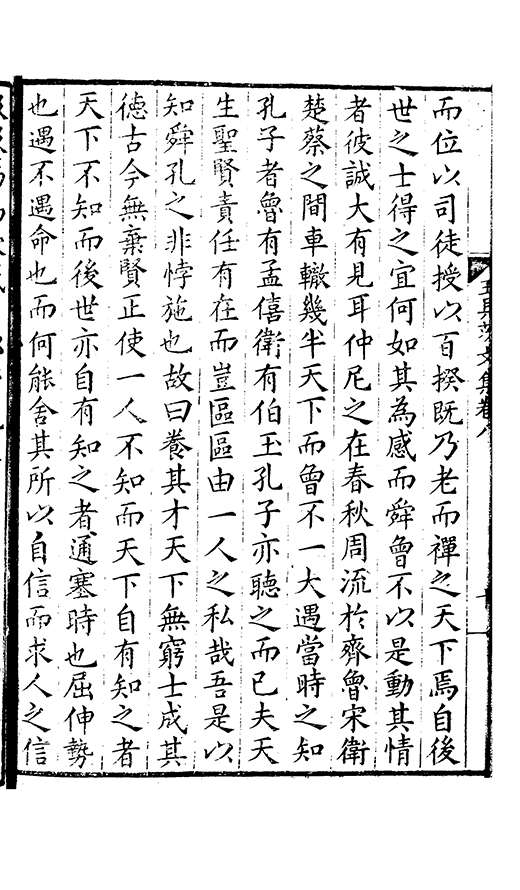 而位以司徒授以百揆既乃老而禪之天下焉自後
世之士得之宜何如其為感而舜曾不以是動其情
者彼誠大有見耳仲尼之在春秋周流於齊魯宋衛
楚蔡之間車轍幾半天下而曾不一大遇當時之知
孔子者魯有孟僖衛有伯玉孔子亦聽之而已夫天
生聖賢責任有在而豈區區由一人之私哉吾是以
知舜孔之非悖施也故曰養其才天下無窮士成其
德古今無棄賢正使一人不知而天下自有知之者
天下不知而後世亦自有知之者通塞時也屈伸勢
也遇不遇命也而何能舍其所以自信而求人之信